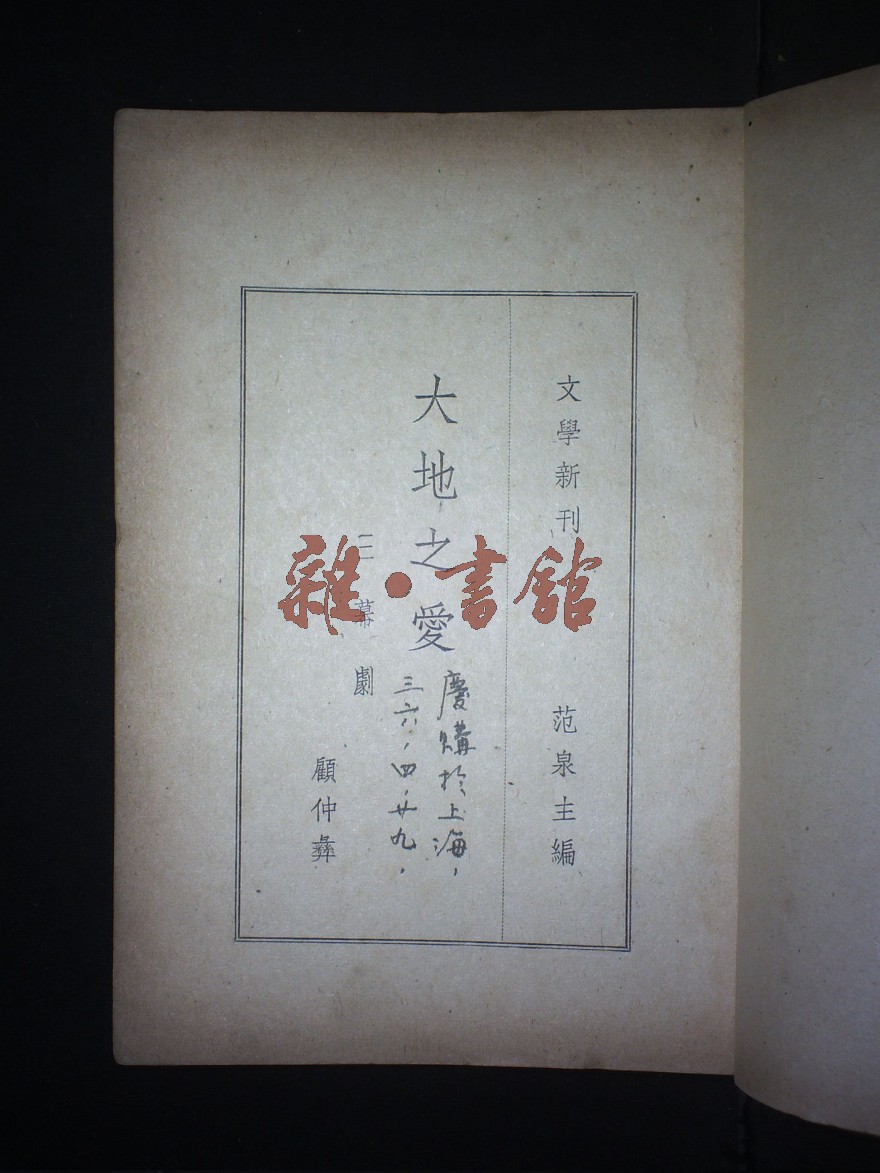 文學新刊 范泉主編
大地之愛
慶購於上海,
三六、四、廿九,
三幕劇
顧仲彝
雜·書館